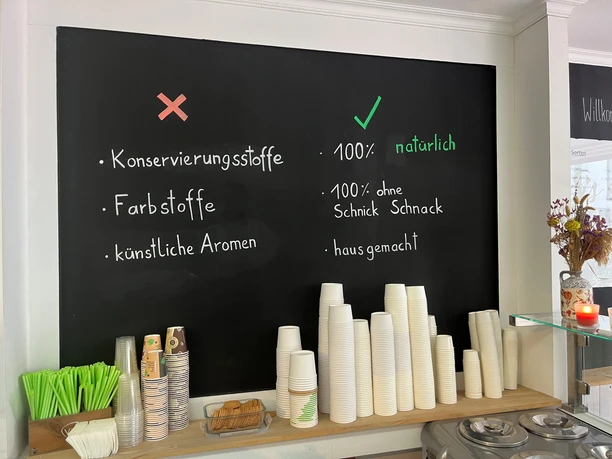 · Konservierungsstoffe
· Farbstoffe
· künstliche Aromen
· 100% natürlich
· 100% ohne
Schnick Schnack
· hausgemacht